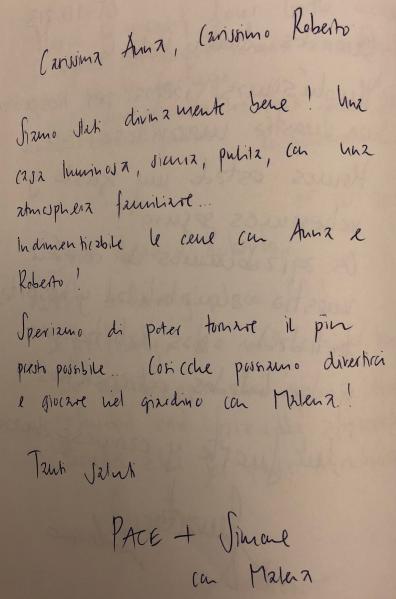 Carissima Anna, Carissimo Roberto
Siamo stati divinamente bene! Una
casa luminosa, sicura, pulita, con una
atmosphera familiare...
Indimenticabile le cene con Anna e
Roberto!
Speriamo di poter tornare il piu
presto possibile.. Cosicche possiamo divertirci
e giocare nel giardino con Malena!
Tanti saluti
PACE + Simone
con Malena